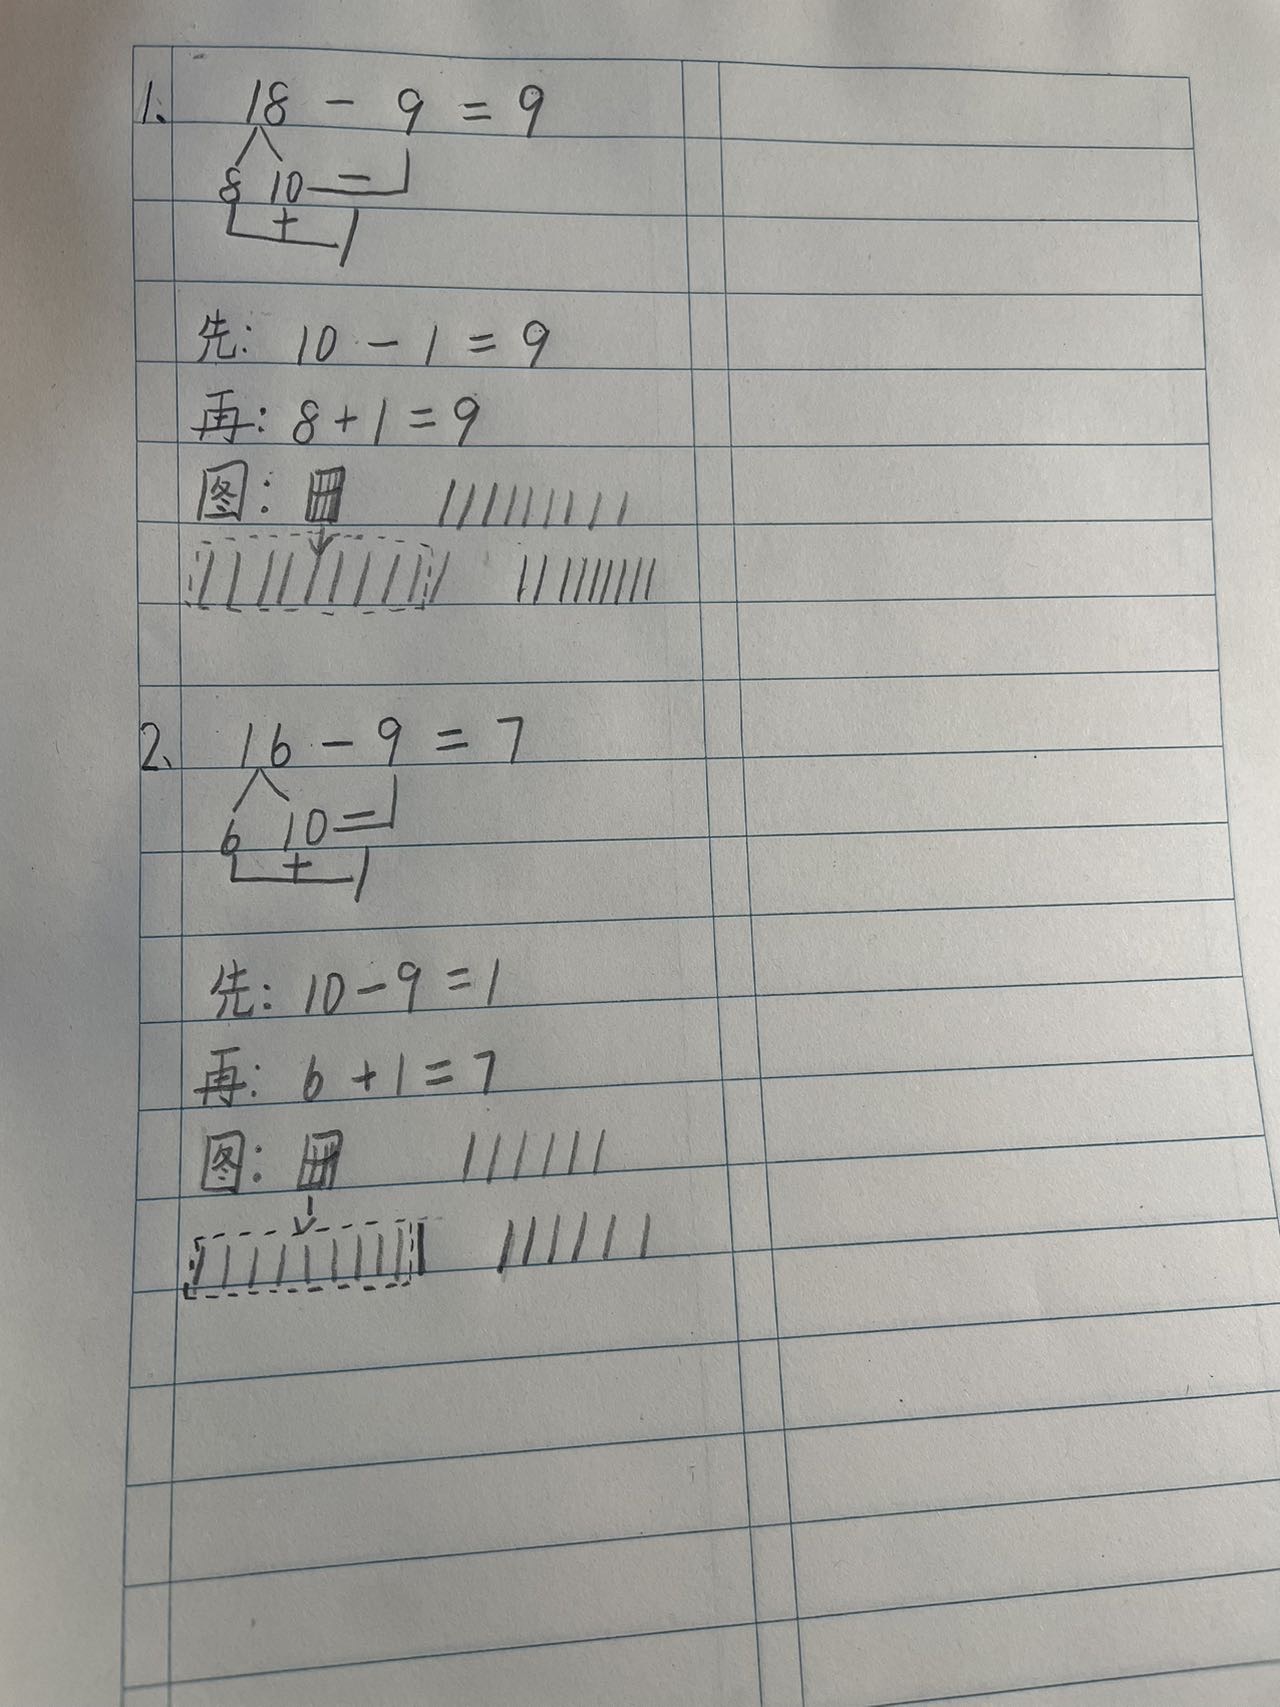 1. 18 - 9 = 9
8 10 -
+ 1
先: 10 - 1 = 9
再: 8 + 1 = 9
图:
2、 16 - 9 = 7
6 10 -
+ 1
先: 10 - 9 = 1
再: 6 + 1 = 7
图: